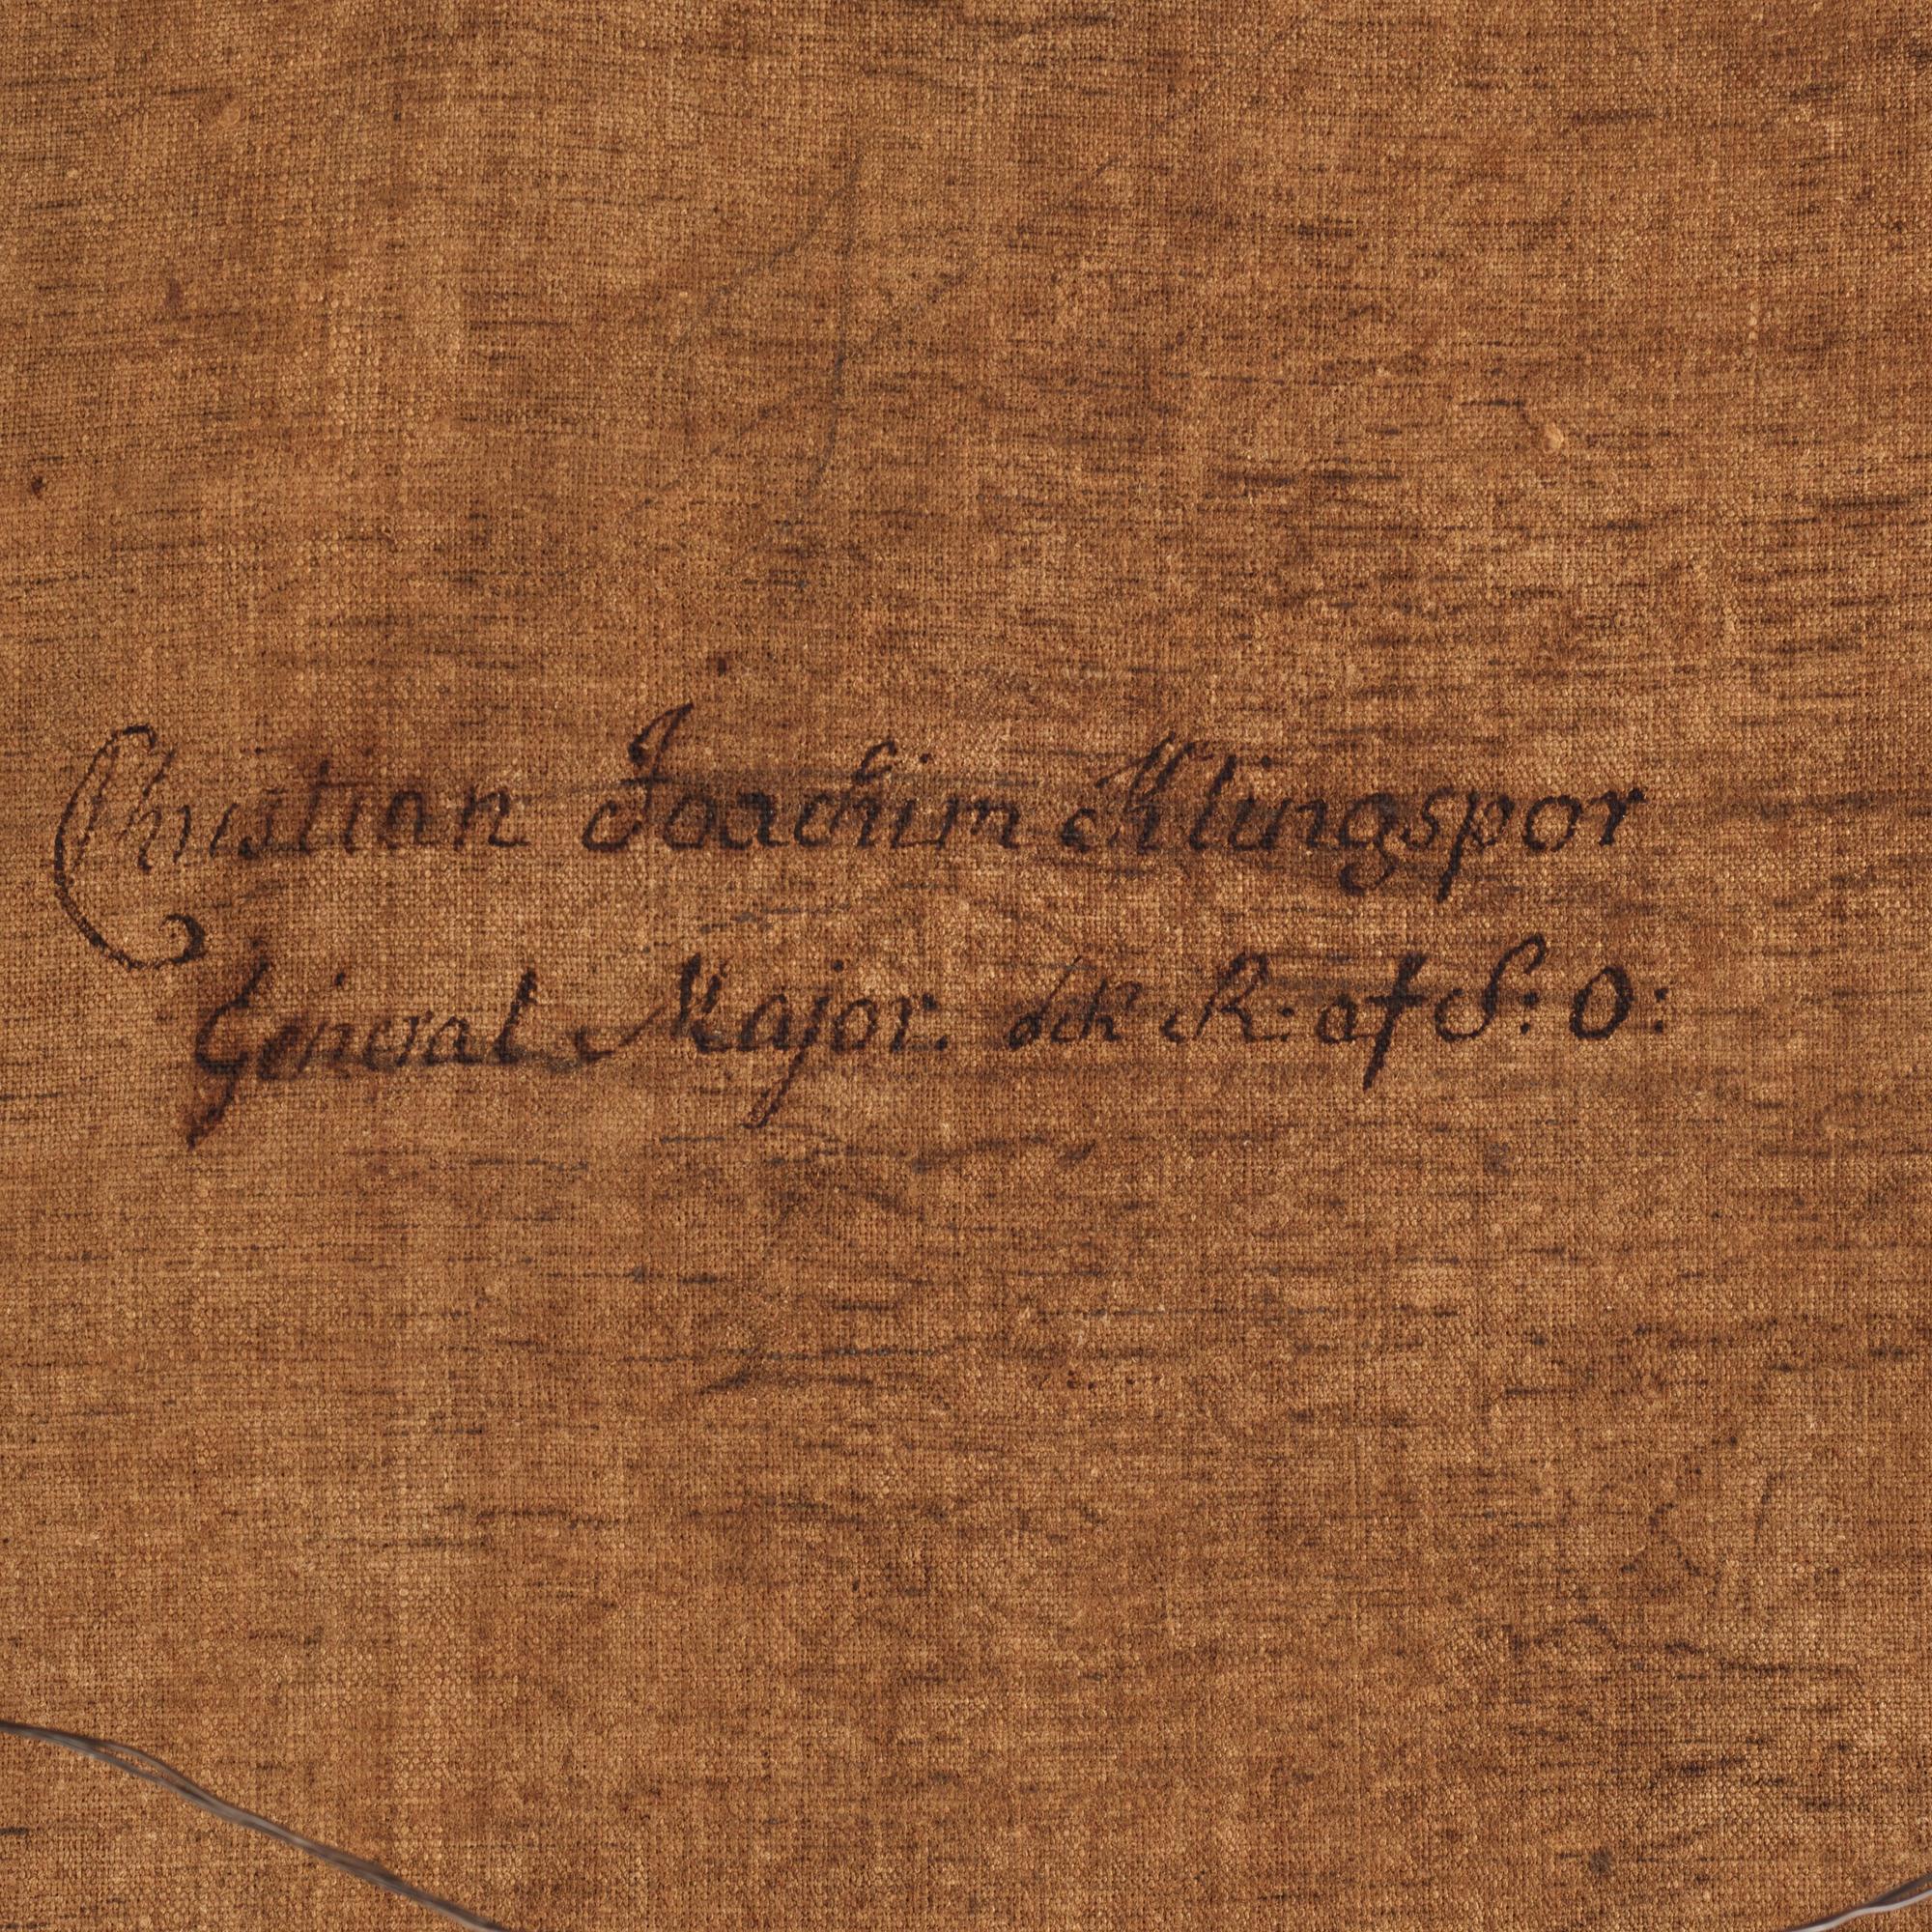 Christian Joachim Klingspor
General Major. och R: af S: O: